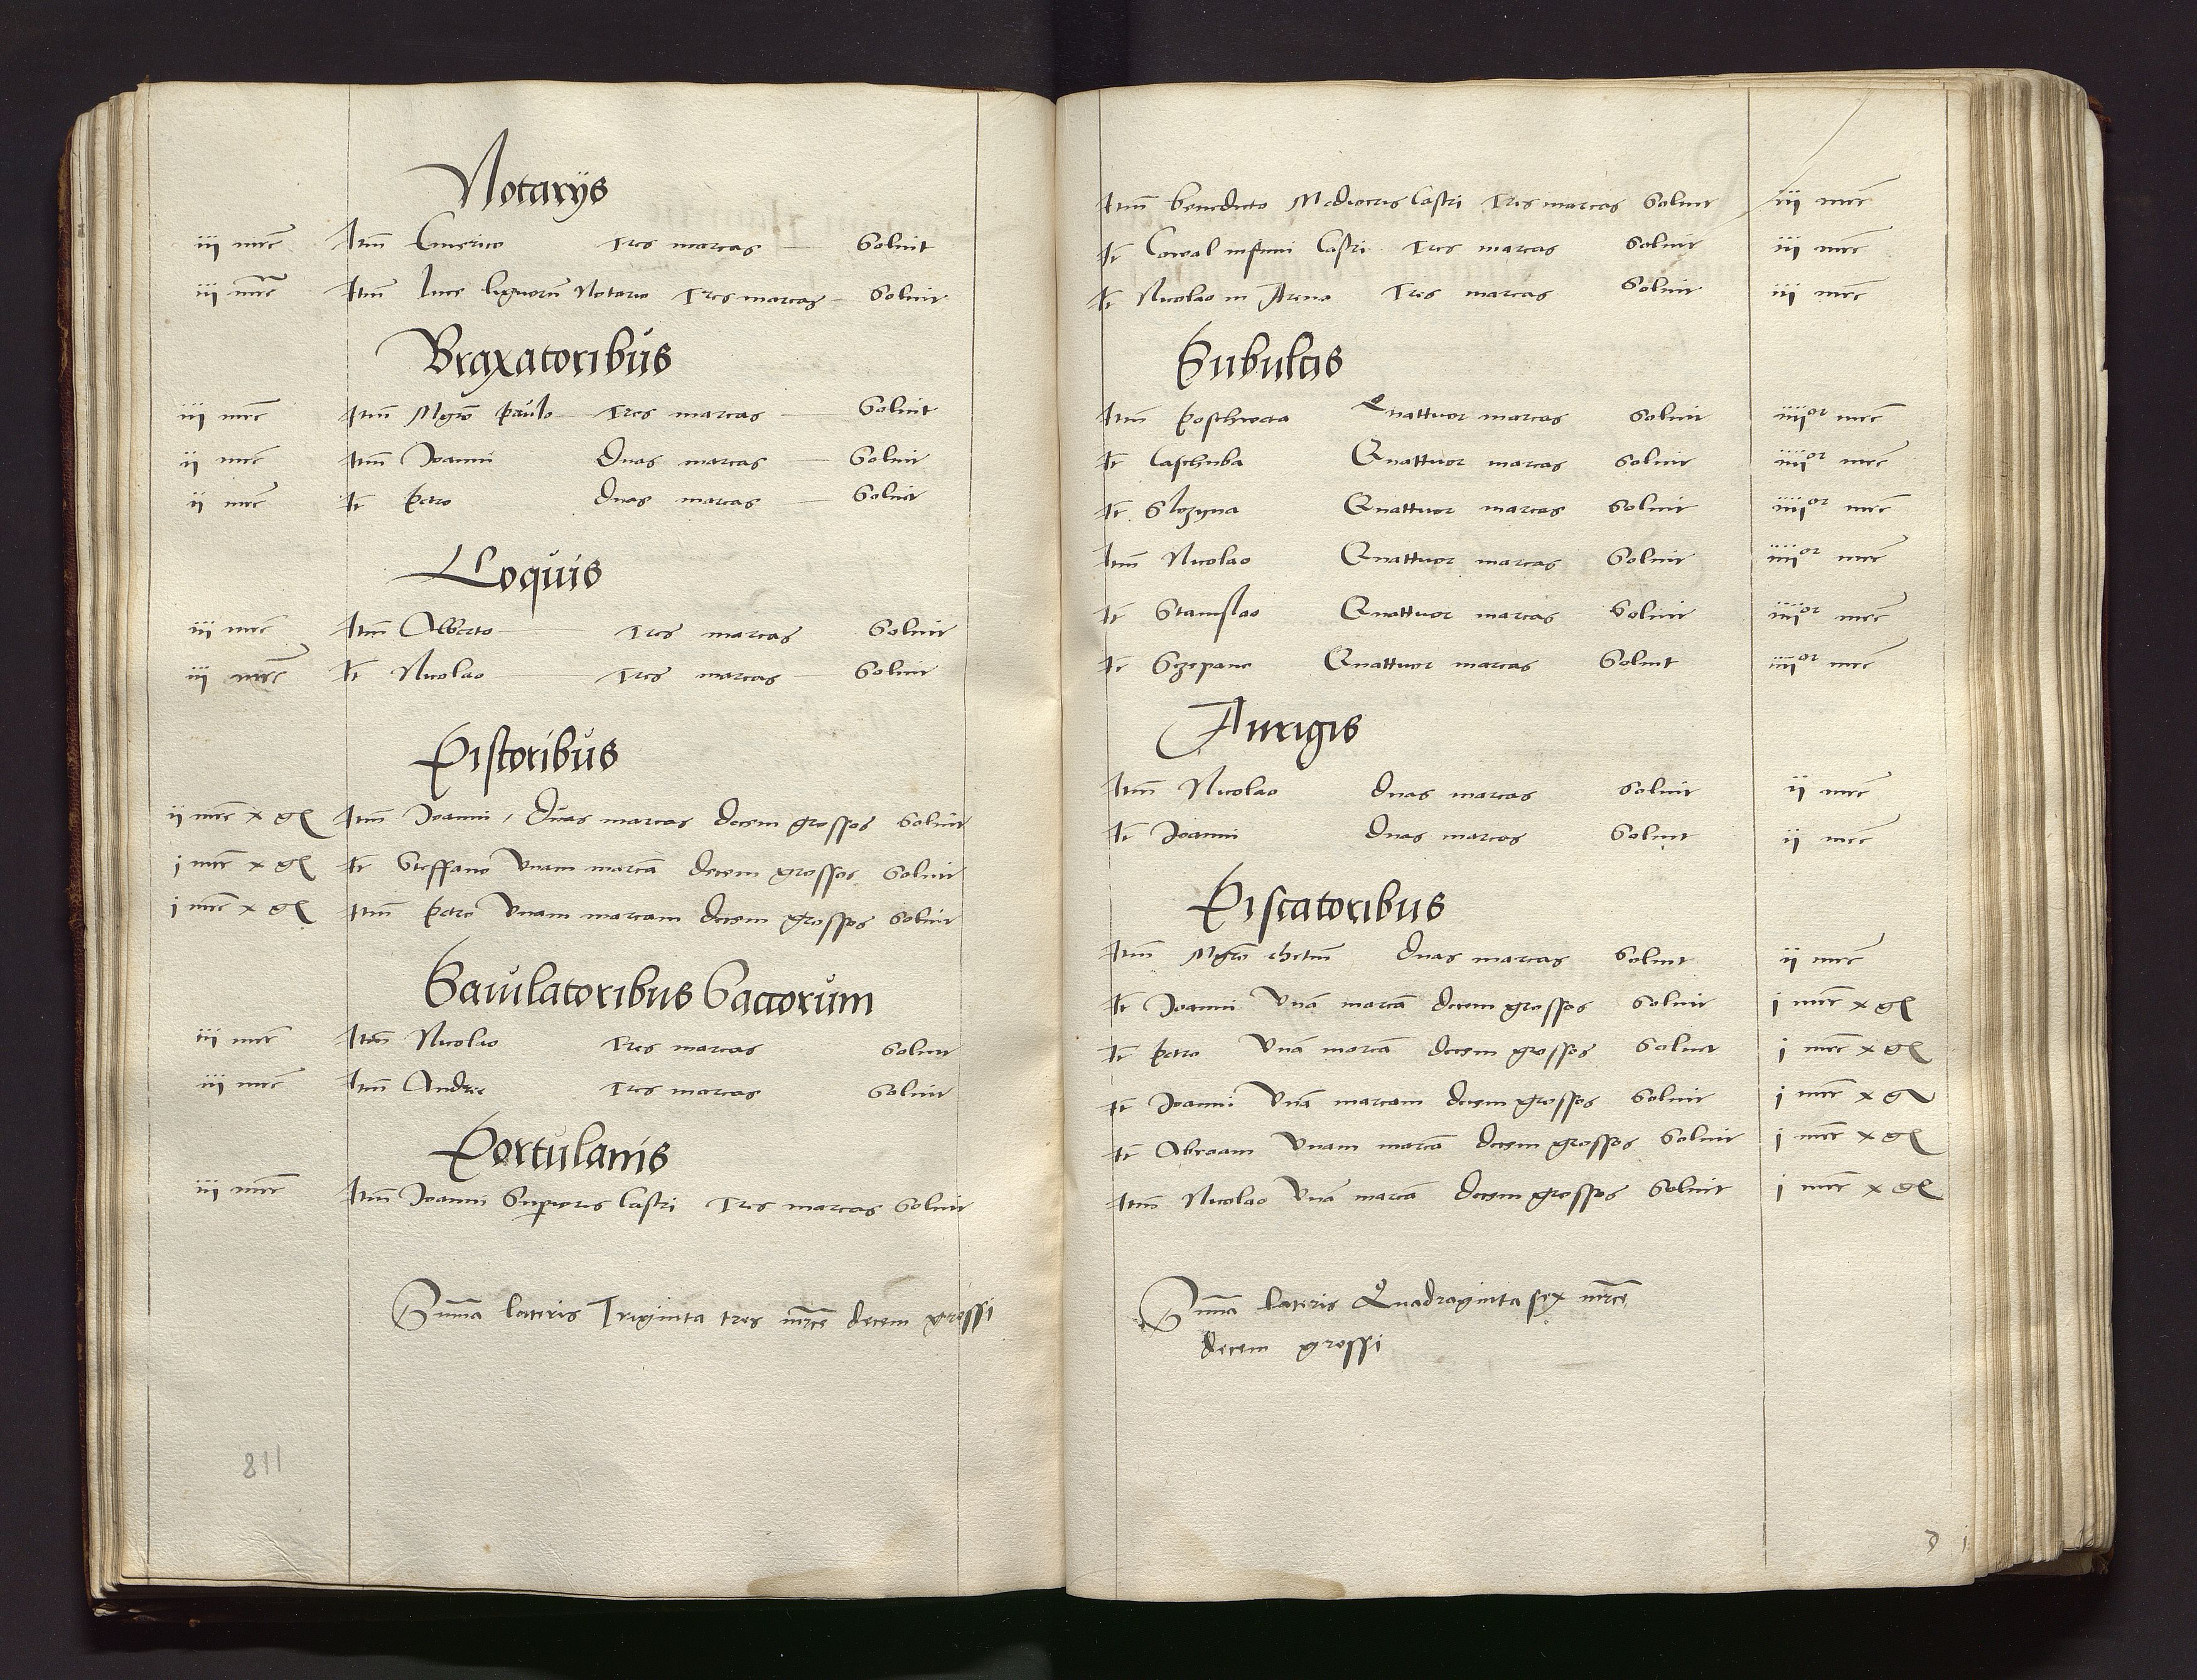 Notarijs
iij mrc Itm Emerico Tres marcas Soluit
iij mrc Itm Luce lignorũ Notario Tres marcas Soluit
Braxatoribus
iij mrc Itm Mgrõ paulo Tres marcas Soluit
ij mrc Itm Joanni Duas marcas Soluit
ij mrc It petro Duas marcas Soluit
Coquis
iij mrc Itm Alberto Tres marcas Soluit
iij mrc It Nicolao Tres marcas Soluit
Pistoribus
ij mrc x gr Itm Joanni, Duas marcas decem grossos Soluit
j mrc x gr It Steffano Vnam marcã decem grossos Soluit
j mrc x gr Itm petro Vnam marcam decem grossos Soluit
Baiulatoribus Saccorum
iij mrc Itm Nicolao Tres marcas Soluit
iij mrc Itm Andree Tres marcas Soluit
Portulanis
iij mrc Itm Joanni Superioris Castri Tres marcas Soluit
Suma lateris Triginta tres mrce decem grossi
811
Itm benedicto Mediocris Castri Tres marcas Soluit iij mrc
It Cowal infimi Castri Tres marcas Soluit iij mrc
It Nicolao in Areno Tres marcas Soluit iij mrc
Subulcis
Itm poschwcta Quattuor marcas Soluit iiijor mrc
It Caschuba Quattuor marcas Soluit iiijor mrc
It Slozyna Quattuor marcas Soluit iiijor mrc
Itm Nicolao Quattuor marcas Soluit iiijor mrc
It Stanislao Quattuor marcas Soluit iiijor mrc
It Sczepano Quattuor marcas Soluit iiijor mrc
Aurigis
Itm Nicolao Duas marcas Soluit ij mrc
It Joanni Duas marcas Soluit ij mrc
Piscatoribus
Itm Mgrõ Duas marcas Soluit ij mrc
It Joanni Vnã marcã decem grossos Soluit j mrc x gr
It petro Vnã marcã decem grossos Soluit j mrc x gr
It Joanni Vnã marcam decem grossos Soluit j mrc x gr
It Abraam Vnam marcã decem grossos Soluit j mrc x gr
Itm Nicolao Vnã marcã decem grossos Soluit j mrc x gr
Suma lateris Quadraginta sex mrce
decem grossi